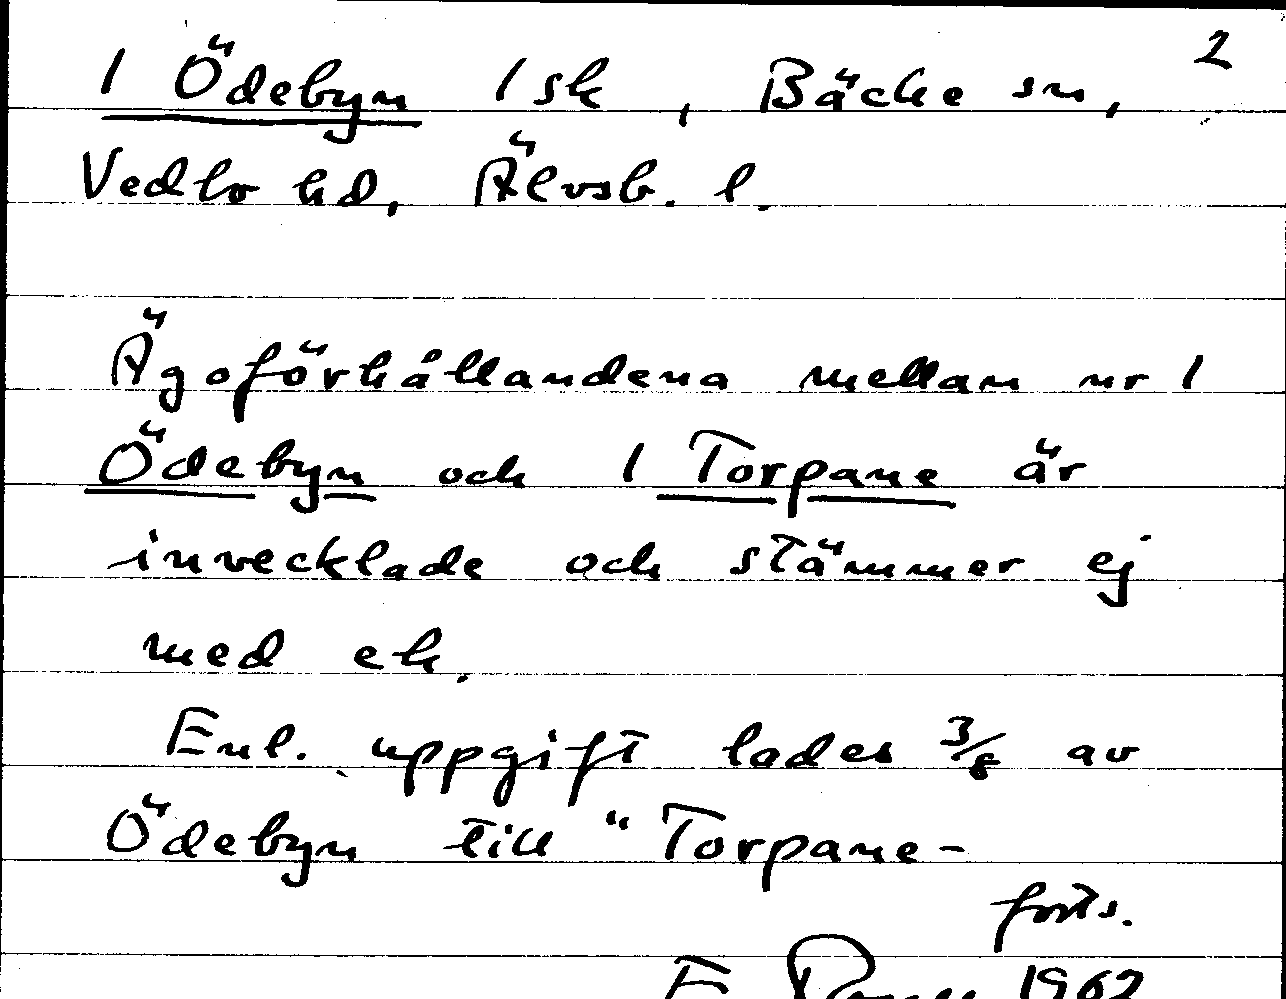 2
1 Ödebyn 1 sk, Bäcke sn,
Vedbo hd, Älvsb. l.
Ägoförhållandena mellan nr 1
Ödebyn och 1 Torpane är
invecklade och stämmer ej
med ek.
Enl. uppgift lades 3/8 av
Ödebyn till "Torpane-
forts.
1962